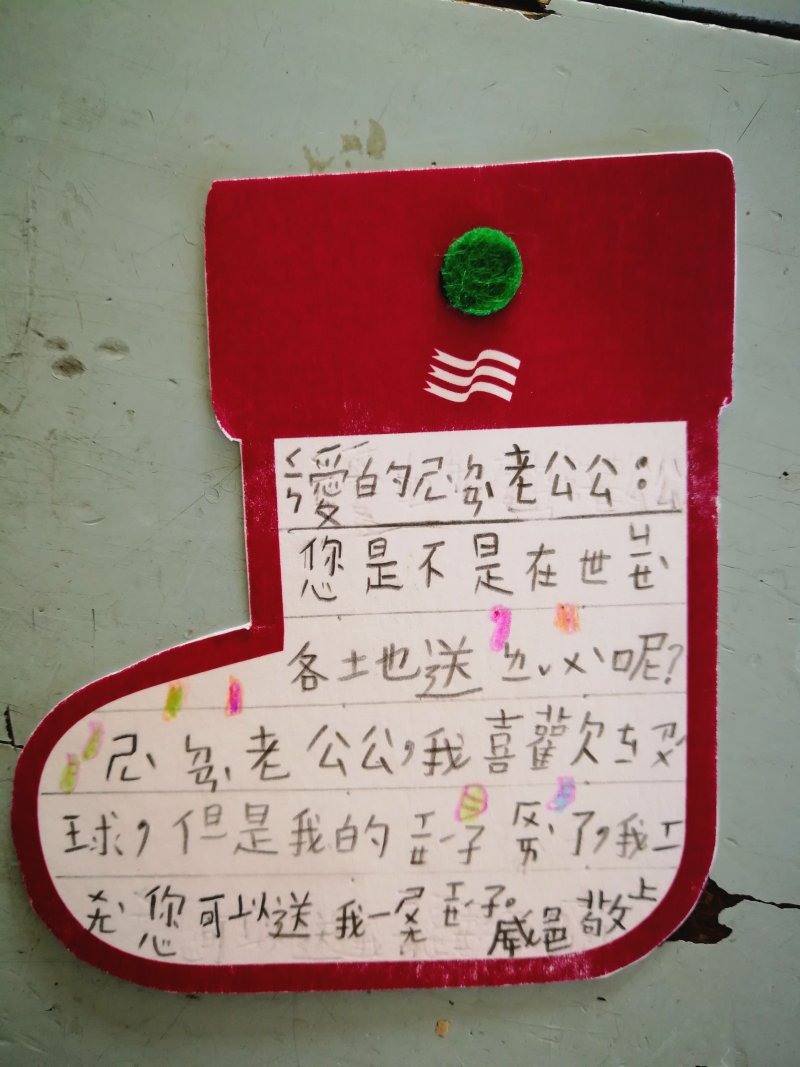 ㄑㄧㄣ愛的ㄕㄥˋㄉㄢˋ老公公：
您是不是在世ㄐㄧㄝˋ
各土也送ㄌㄧˇㄨˋ呢？
ㄕㄥˋㄉㄢˋ老公公，我喜歡ㄊㄧㄗㄨˊ
球，但是我的ㄒㄧㄝˊ子ㄏㄨㄞˋ了，我ㄒㄧ
ㄨㄤˋ您可以送我一ㄕㄨㄤㄒㄧㄝˊ子。威邑敬上